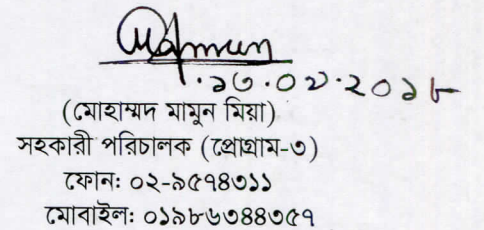 Mamun
১৩.০২.২০১৮
(মোহাম্মদ মামুন মিয়া)
সহকারী পরিচালক (প্রোগ্রাম-৩)
ফোনঃ ০২-৯৫৭৪৩১১
মোবাইলঃ ০১৯৮৬৩৪৪৩৫৭